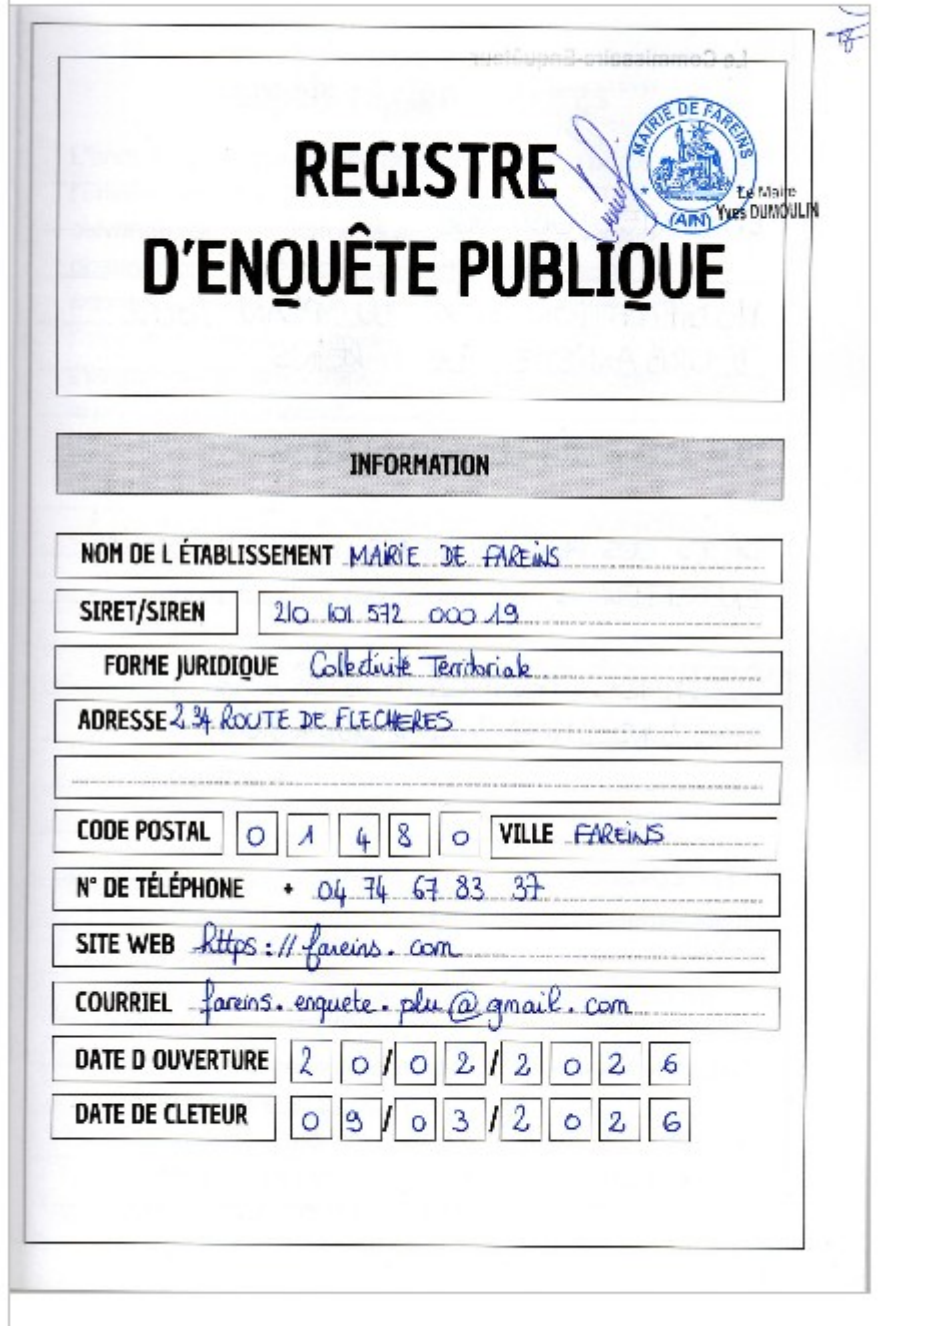 REGISTRE
D'ENQUÊTE PUBLIQUE
MAIRIE DE FAREINS
(AIN)
Le Maire
Yves DUMOULIN
INFORMATION
NOM DE L ÉTABLISSEMENT MAIRIE DE FAREINS
SIRET/SIREN 210 101 572 000 19
FORME JURIDIQUE Collectivité Territoriale
ADRESSE 234 ROUTE DE FLECHERES
CODE POSTAL 0 1 4 8 0 VILLE FAREINS
N° DE TÉLÉPHONE + 04 74 67 83 37
SITE WEB https://fareins.com
COURRIEL fareins.enquete.plu@gmail.com
DATE D OUVERTURE 20/02/2026
DATE DE CLETEUR 09/03/2026